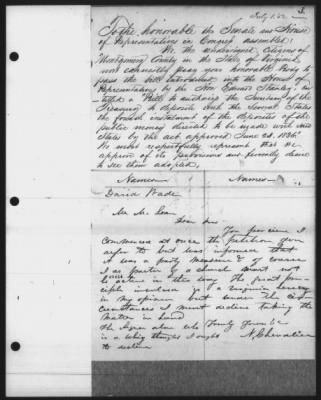 July 1. 52
To the honorable the Senate and House
of Representatives in Congress assembled:
We the undersigned citizens of
Montgomery County in the State of Virginia
most earnestly pray your honorable Body to
pass the bill introduced into the House of
Representatives by the Hon Edward Stanley, en-
titled a "Bill authorizing the Secretary of the
Treasury to deposit with the several States
the fourth instalment of the deposites of the
public money directed to be made with said
States by the act approved June 23, 1836."
We most respectfully represent that we
approve of its provisions and fervently desire
to see them adopted.
Names Names
David Wade
Mr. Mc
Dear Sir
You perceive I
commenced at once the petition you
refer to but was informed that
it was a party measure & of course
I as pastor of a church must not
be active in these things. The great prin-
ciple involved is a
in my opinion but under the cir-
cumstances I must decline taking the
matter in hand
The man who
is a whig thought I ought N. Chevalier
to decline